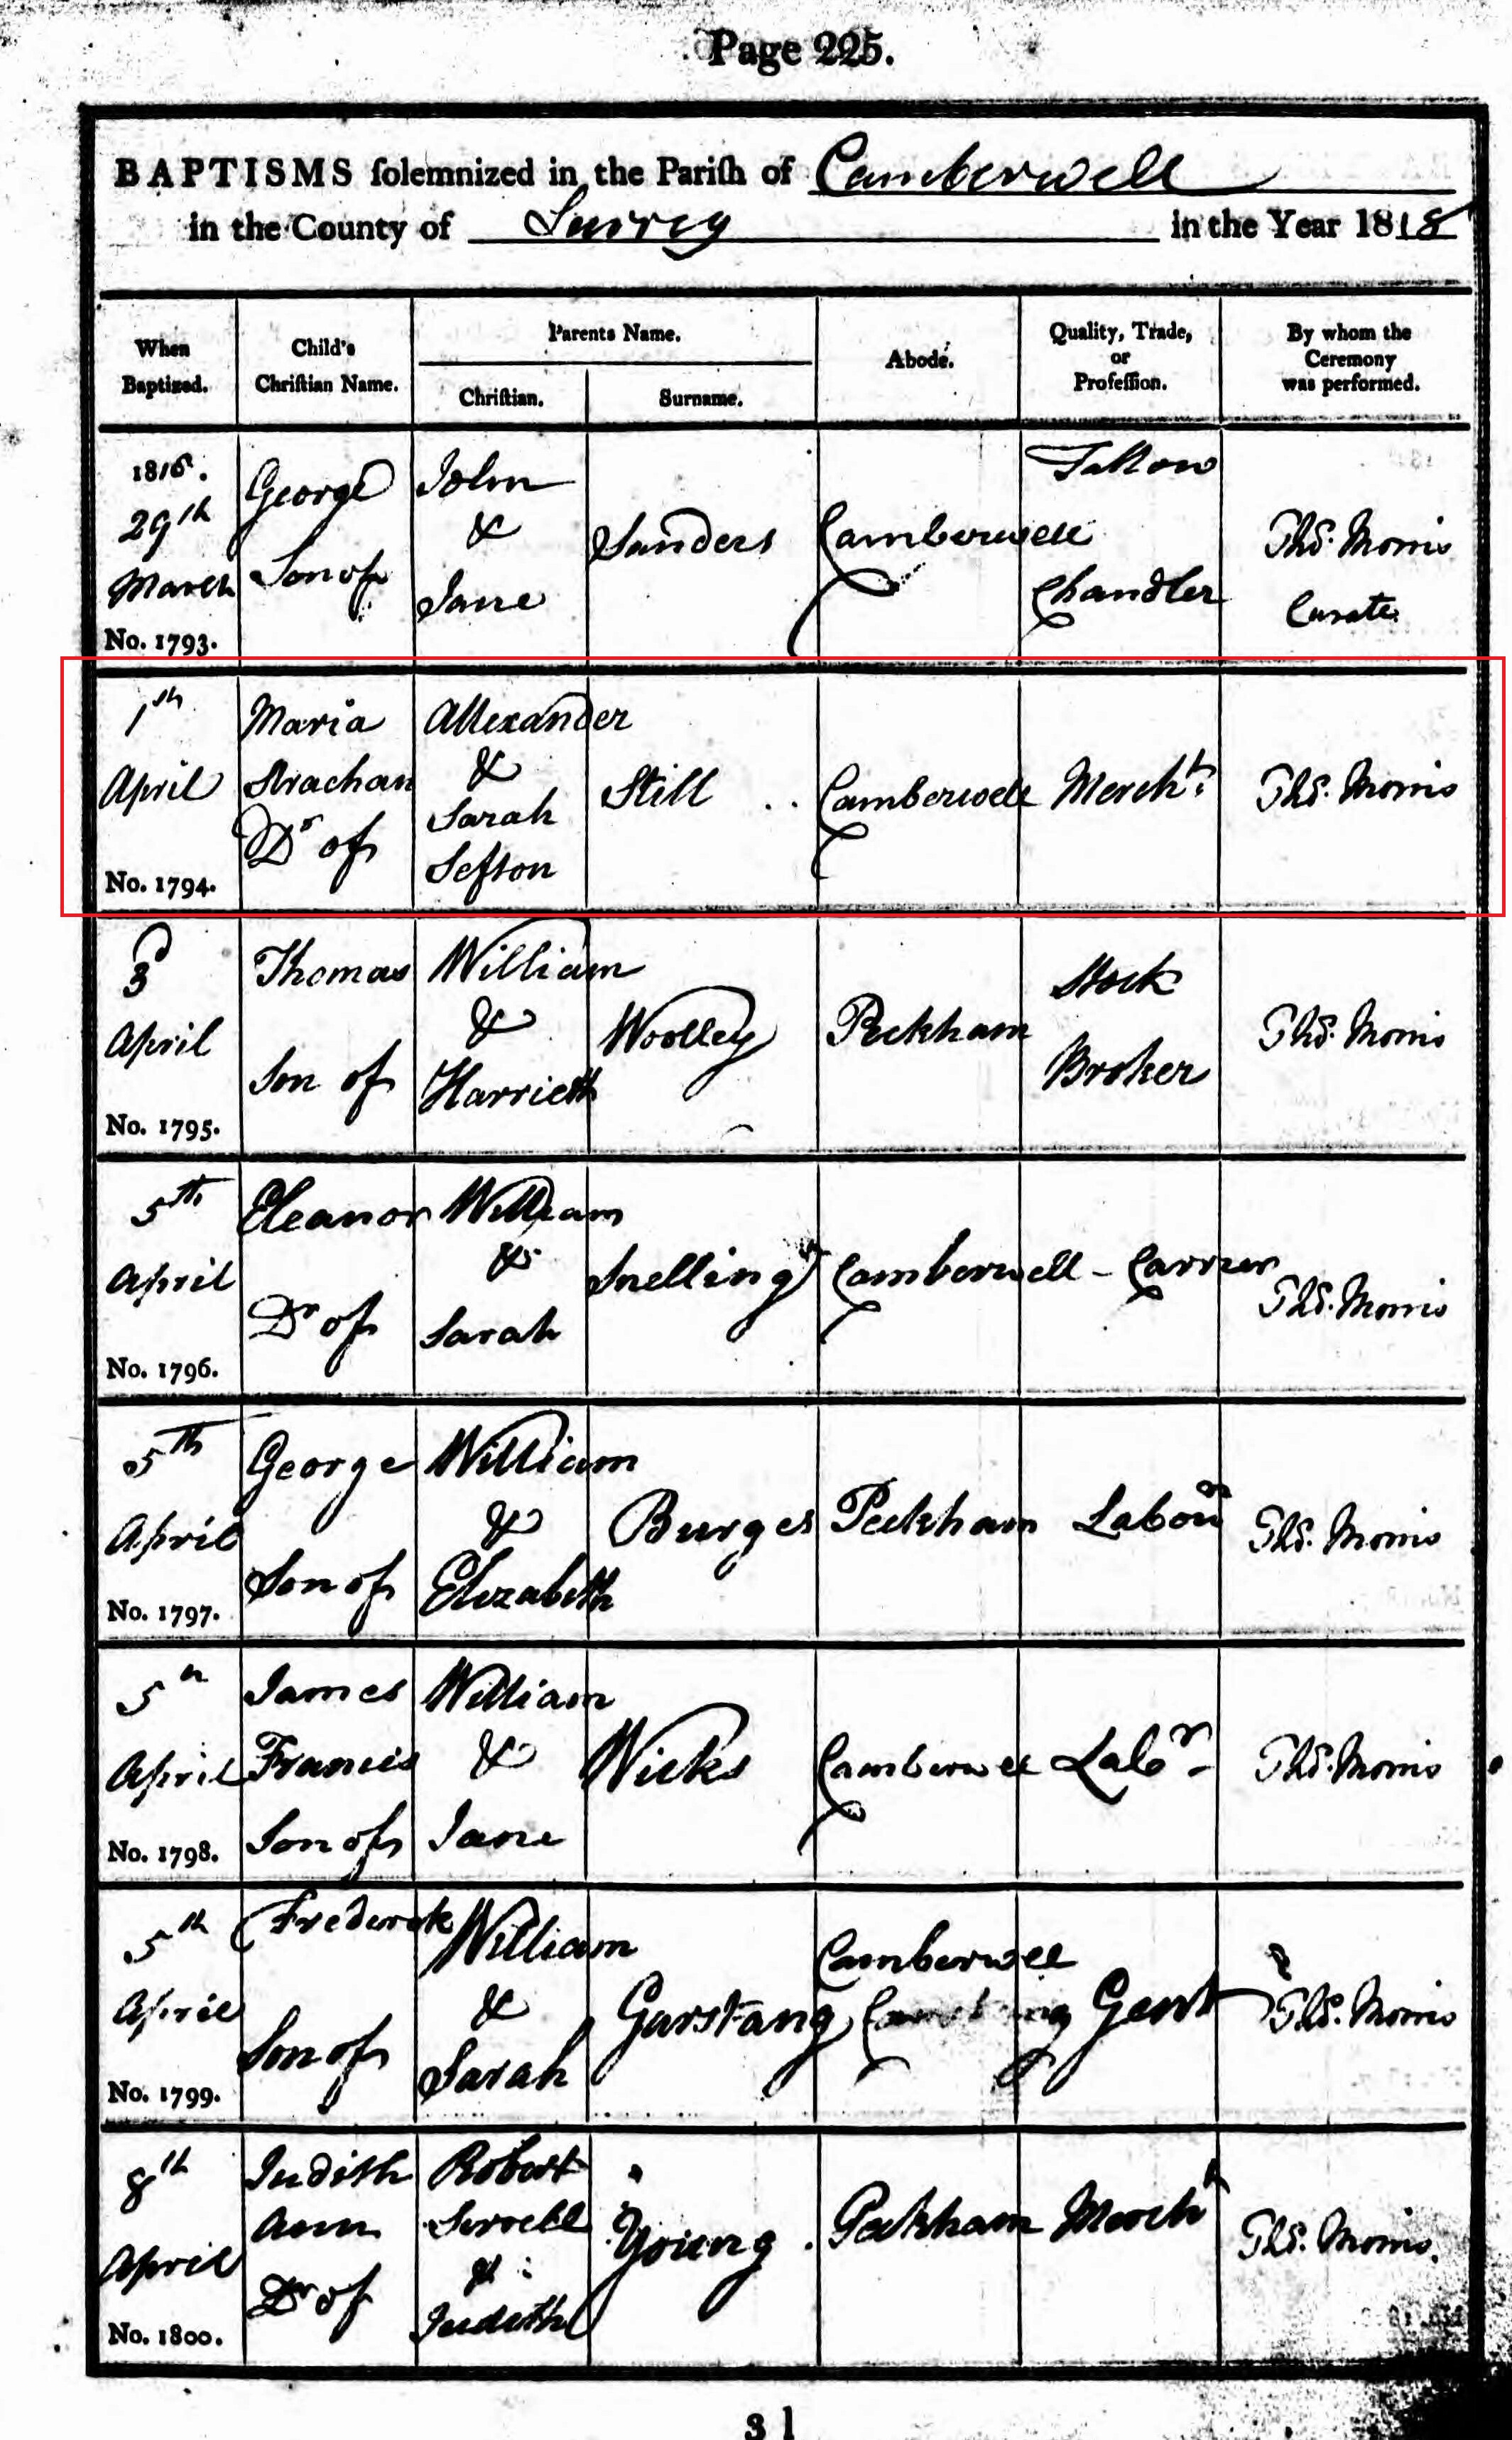 Page 225.
BAPTISMS ſolemnized in the Pariſh of Camberwell
in the County of Surrey in the Year 1818
When
Baptized.
Child's
Chriſtian Name.
Parents Name.
Chriſtian.
Surname.
Abode.
Quality, Trade,
or
Profeſſion.
By whom the
Ceremony
was performed.
1818.
29th
March
No. 1793.
George
Son of
John
&
Jane
Sanders
Camberwell
Tallow
Chandler
Thos. Morris
Curate.
1th
April
No. 1794.
Maria
Strachan
Dr of
Allexander
&
Sarah
Sefton
Still
Camberwell
Mercht.
Thos. Morris
3d
April
No. 1795.
Thomas
Son of
William
&
Harrieth
Woolley
Peckham
Stock
Broker
Thos. Morris
5th
April
No. 1796.
Eleanor
Dr of
William
&
Sarah
Snelling
Camberwell - Carrier
Thos. Morris
5th
April
No. 1797.
George
Son of
William
&
Elizabeth
Burges
Peckham
Labour
Thos. Morris
5th
April
No. 1798.
James
Francis
Son of
William
&
Jane
Wicks
Camberwell
Labr -
Thos. Morris
5th
April
No. 1799.
Frederick
Son of
William
&
Sarah
Garstang
Camberwell
Gent
Thos. Morris
8th
April
No. 1800.
Judith
Ann
Dr of
Robert
&
Judith
Young
Peckham
Mercht
Thos. Morris.
31